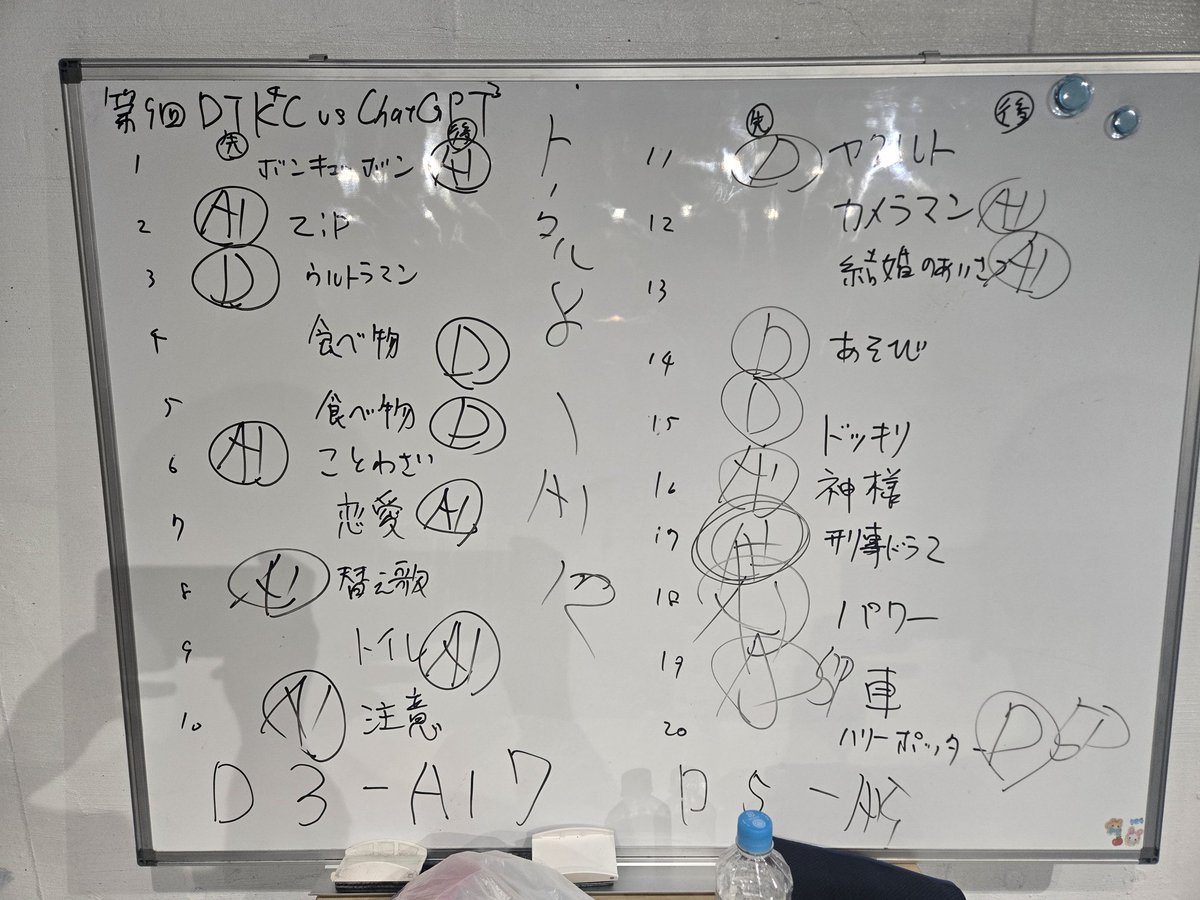 第9回 DTKC⁴ vs ChatGPT³
先 後
1 ボンキュッボン AI
2 AI Zip
3 D ウルトラマン
4 食べ物 D
5 食べ物 D
6 AI ことわざ
7 恋愛 AI
8 AI 替え歌
9 トイレ AI
10 AI 注意
D3-AI7
トータル
8
-
AI
12
先 後
11 D ヤクルト
12 カメラマン AI
13 結婚のあいさつ AI
14 D あそび
15 D ドッキリ
16 AI 神様
17 AI 刑事ドラマ
18 AI パワー
19 A 5P 車
20 ハリーポッター D 5P
D5-AI5